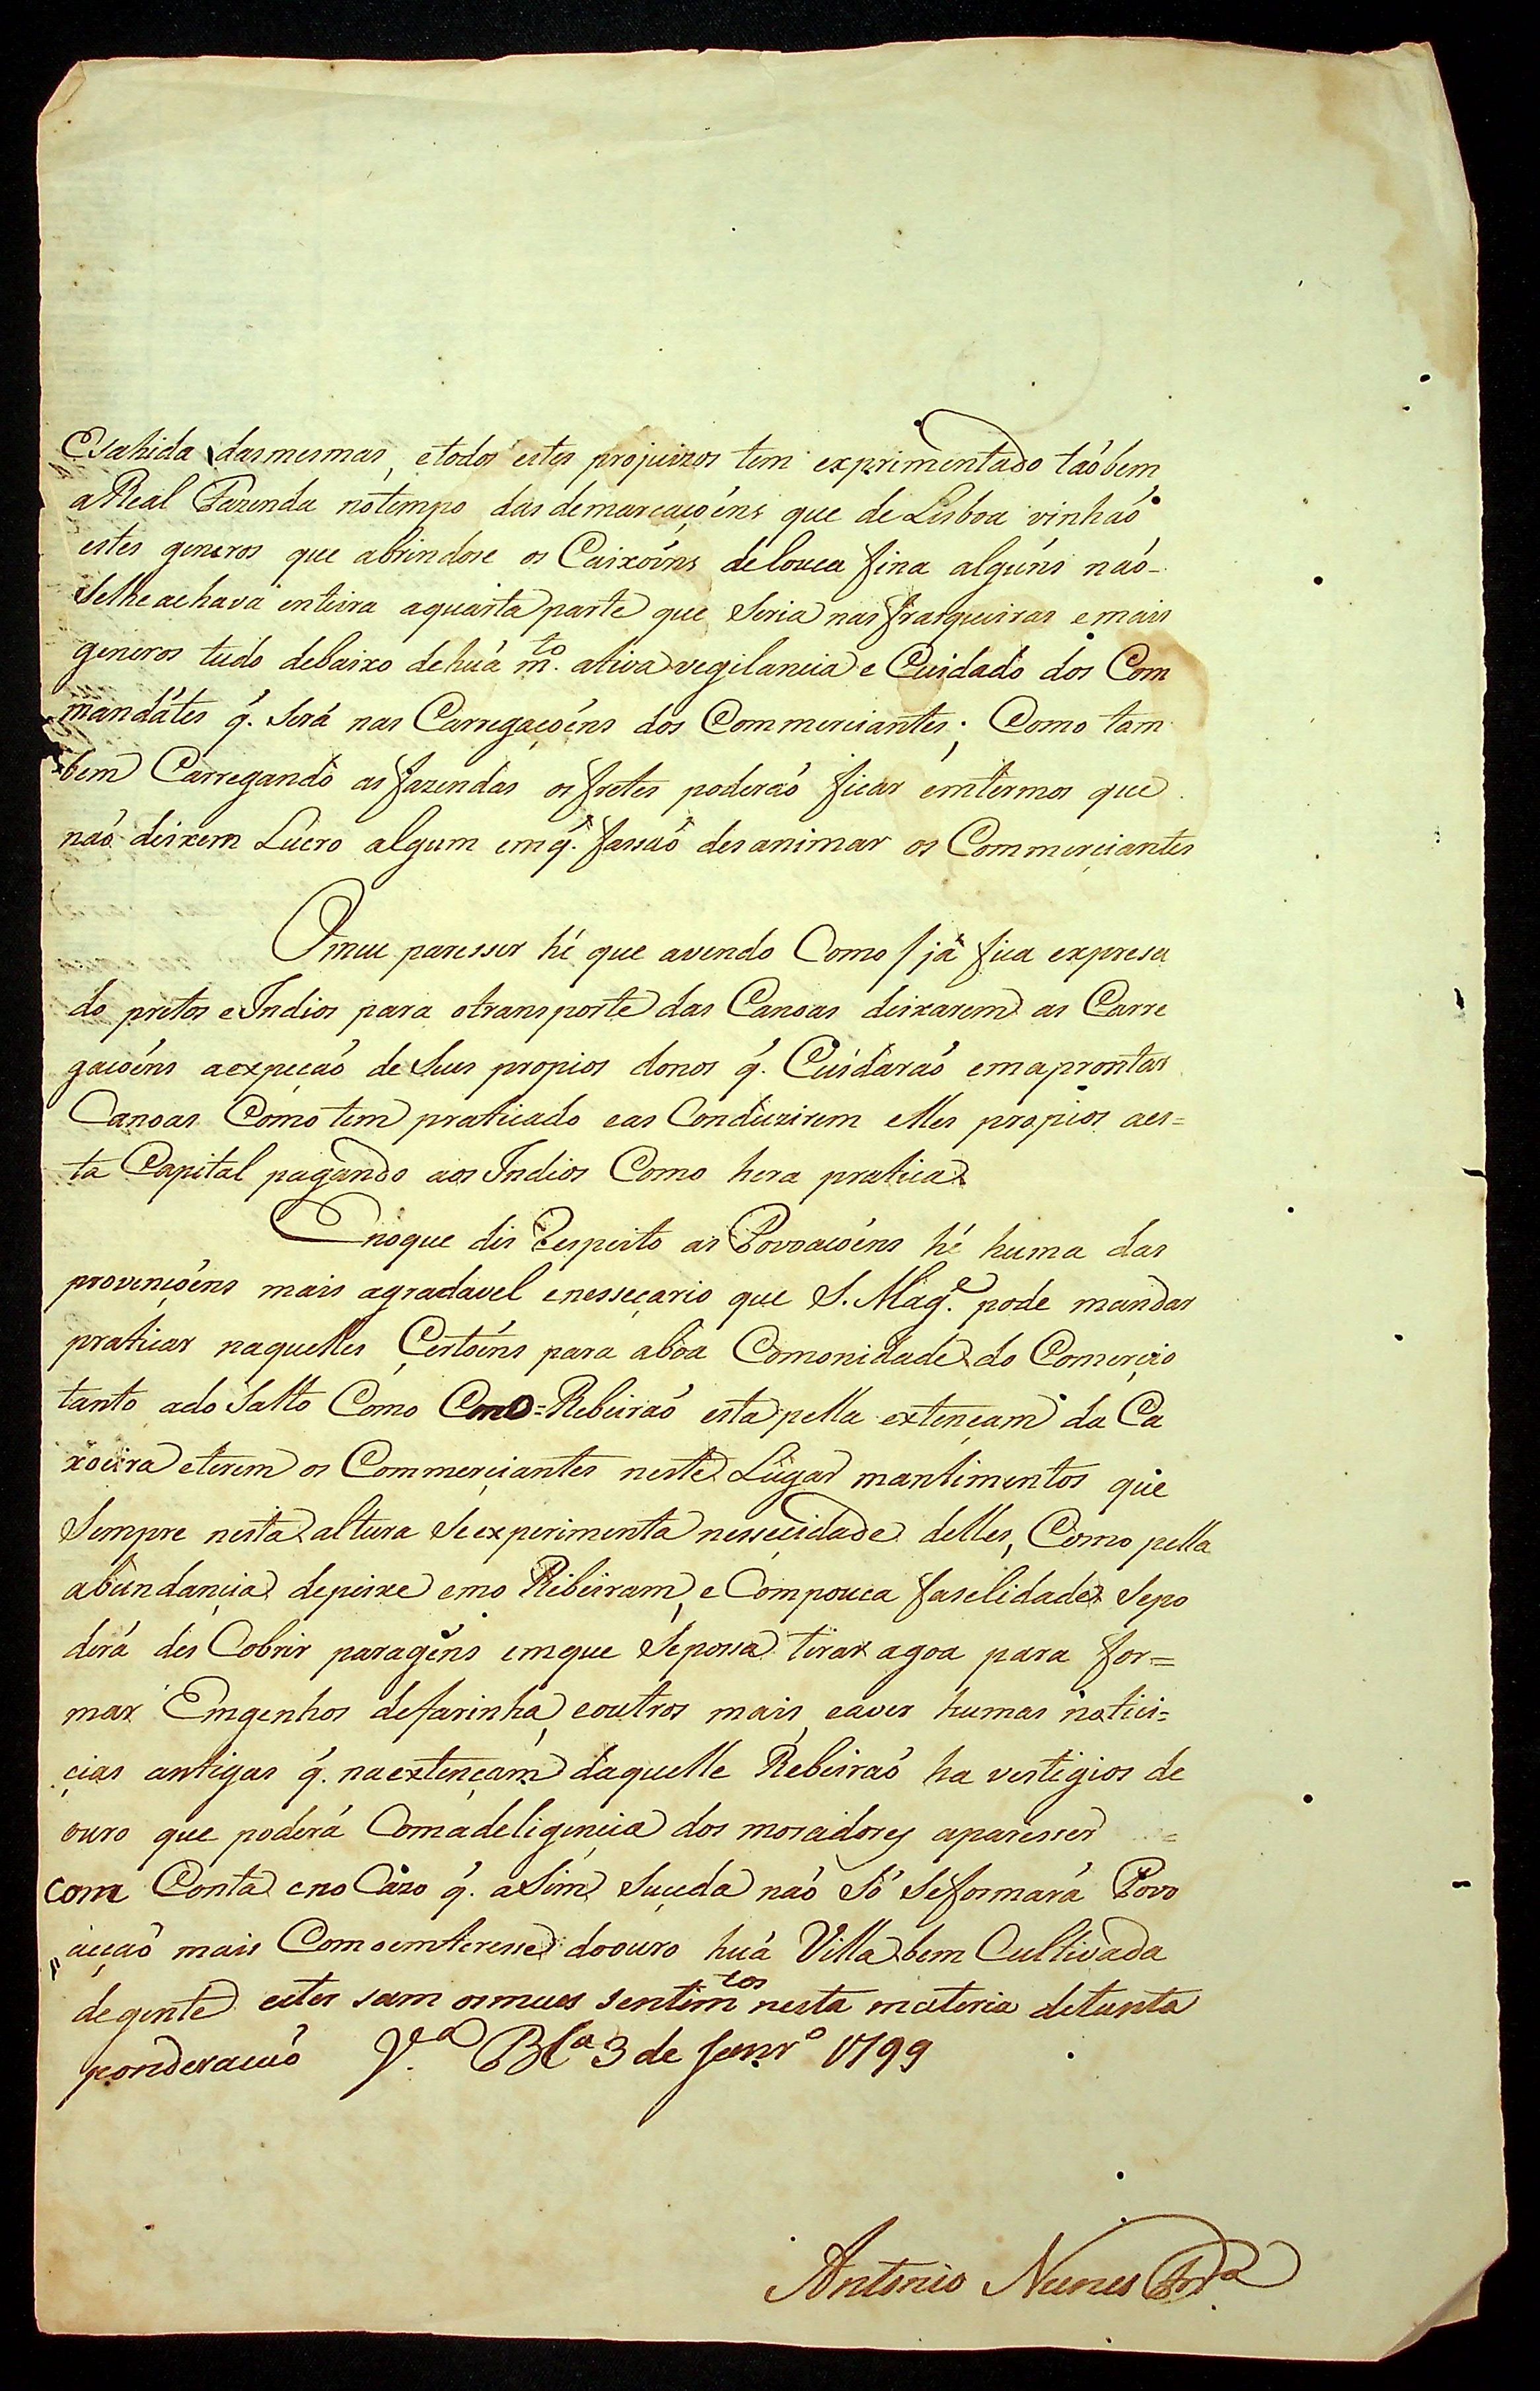 Esahida dasmesmas, etodos estes projuizos tem exprimentado taóbem
aReal Fazenda notempo das demarcaçoéns que de Lisboa vinhaó
estes generos que abrindose os Caixoéns delouca fina alguns naó-
selheachava enteira aquarta parte que seria nas frasqueiras e mais
generos tudo debaixo dehuá m.to ativa vegilancia e Cuidado dos Com
mandátes q̃. será nas Carregaçoéns dos Commerciantes; Como tam
bem Carregando as fazendas os fretes poderaó ficar emtermos que
naó deixem Lucro algum emq̃. fassaó desanimar os Commerçiantes
Omeu paresser hé que avendo Como / já fica expresa
do pretos e Indios para otransporte das Canoas deixarem as Carre
gacoéns aexpeçaó de seus propios donos q̃. Cuidaraó emaprontar
Canoas Como tem praticado eas Conduzirem elles propios aes=
ta Capital pagando aos Indios Como hera pratica
Enoque dis Respeito as Povoacoéns hé huma das
provençoéns mais agradavel enesseçario que S. Mag.e pode mandar
praticar naquelles Çertoéns para aboa Comonidade do Comerçio
tanto ado Salto Como Emo=Rebeiraó esta pella extençam da Ca
xoeira eterem os Commerçiantes neste Lugar mantimentos que
Sempre nesta altura seexperimenta nesseçidade delles, Como pella
abundançia depeixe emo Ribeiram, e Compouca faselidade sepo
derá des Cobrir paragéns emque sepossa tirar agoa para for=
mar Emgenhos defarinha, eoutros mais, eaver humas notiei=
çias antigas q̃. naextençam daquelle Rebeiraó ha vestigios de
ouro que poderá Comadeligençia dos moradores aparesser =
com Conta eno Cazo q̃. asim suçeda naó só seformará Povo
açaó mais Comoemteresse doouro huá Villa bem Cultivada
degente estes sam osmeus sentim.tos nesta materia detanta
ponderacaó V.a B.la 3 de Janr.o 1799
Antonio Nunes